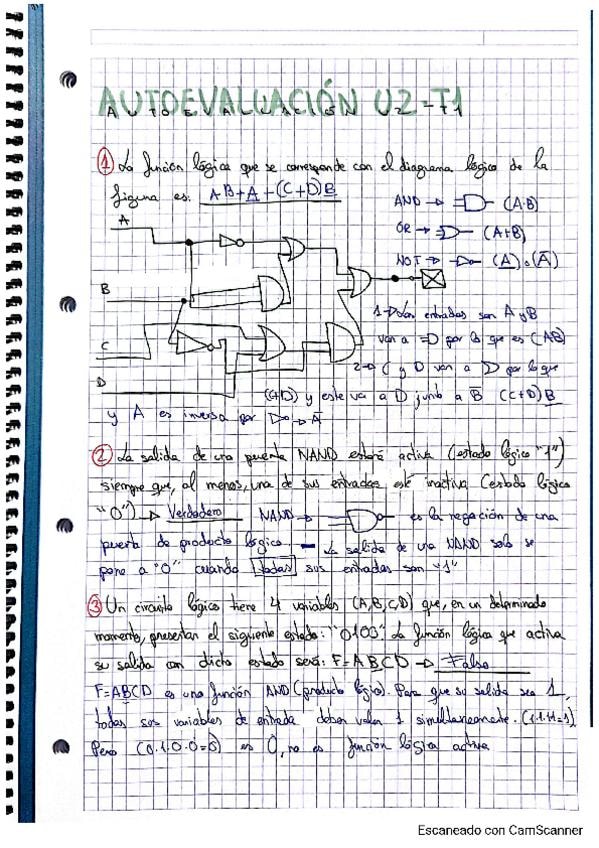 AUTOEVALUACIÓN U2-T1
① La función lógica que se corresponde con el diagrama lógico de la
figura es: AB+A+(C+D)B
AND → (A·B)
OR → (A+B)
NOT → (A) o (Ā)
A
B
C
D
1→ Las entradas son A y B
van a por lo que es (AB)
2→ C y D van a por lo que
(C+D) y este va a junto a B̅ (C+D)B
y A es inversa por → Ā
② La salida de una puerta NAND estará activa (estado lógico "1")
siempre que, al menos, una de sus entradas esté inactiva (estado lógico
"0") → Verdadero NAND → es la negación de una
puerta de producto lógico - La salida de una NAND solo se
pone a "0" cuando todas sus entradas son "1"
③ Un circuito lógico tiene 4 variables (A,B,C,D) que, en un determinado
momento, presentan el siguiente estado: "0100". La función lógica que activa
su salida con dicho estado será: F=ABCD → Falso
F=ABCD es una función AND (producto lógico). Para que su salida sea 1,
todas sus variables de entrada deben valer 1 simultaneamente. (1·1·1·1=1)
Pero (0·1·0·0=0) es 0, no es función lógica activa
Escaneado con CamScanner